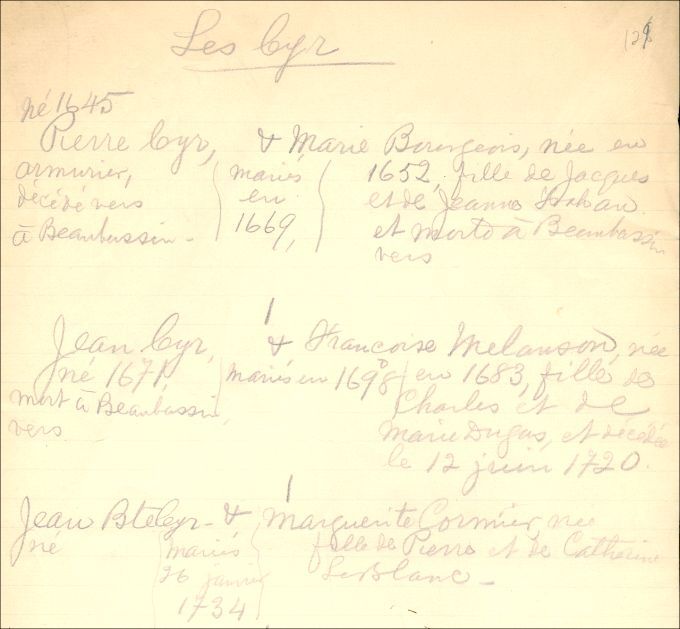 Les Cyr
129
né 1645
Pierre Cyr, & Marie Bourgeois, née en
armurier, mariés 1652, fille de Jacques
décédé vers en et de Jeanne Trahan
à Beaubassin - 1669, et morte à Beaubassin
vers
1
Jean Cyr, & Francoise Melanson, née
né 1671, mariés en 1698 en 1683, fille de
mort à Beaubassin Charles et de
vers Marie Dugas, et décédée
le 12 juin 1720.
1
Jean Bte Cyr - & Marguerite Cormier, née
né mariés fille de Pierre et de Catherine
26 janvier LeBlanc -
1734